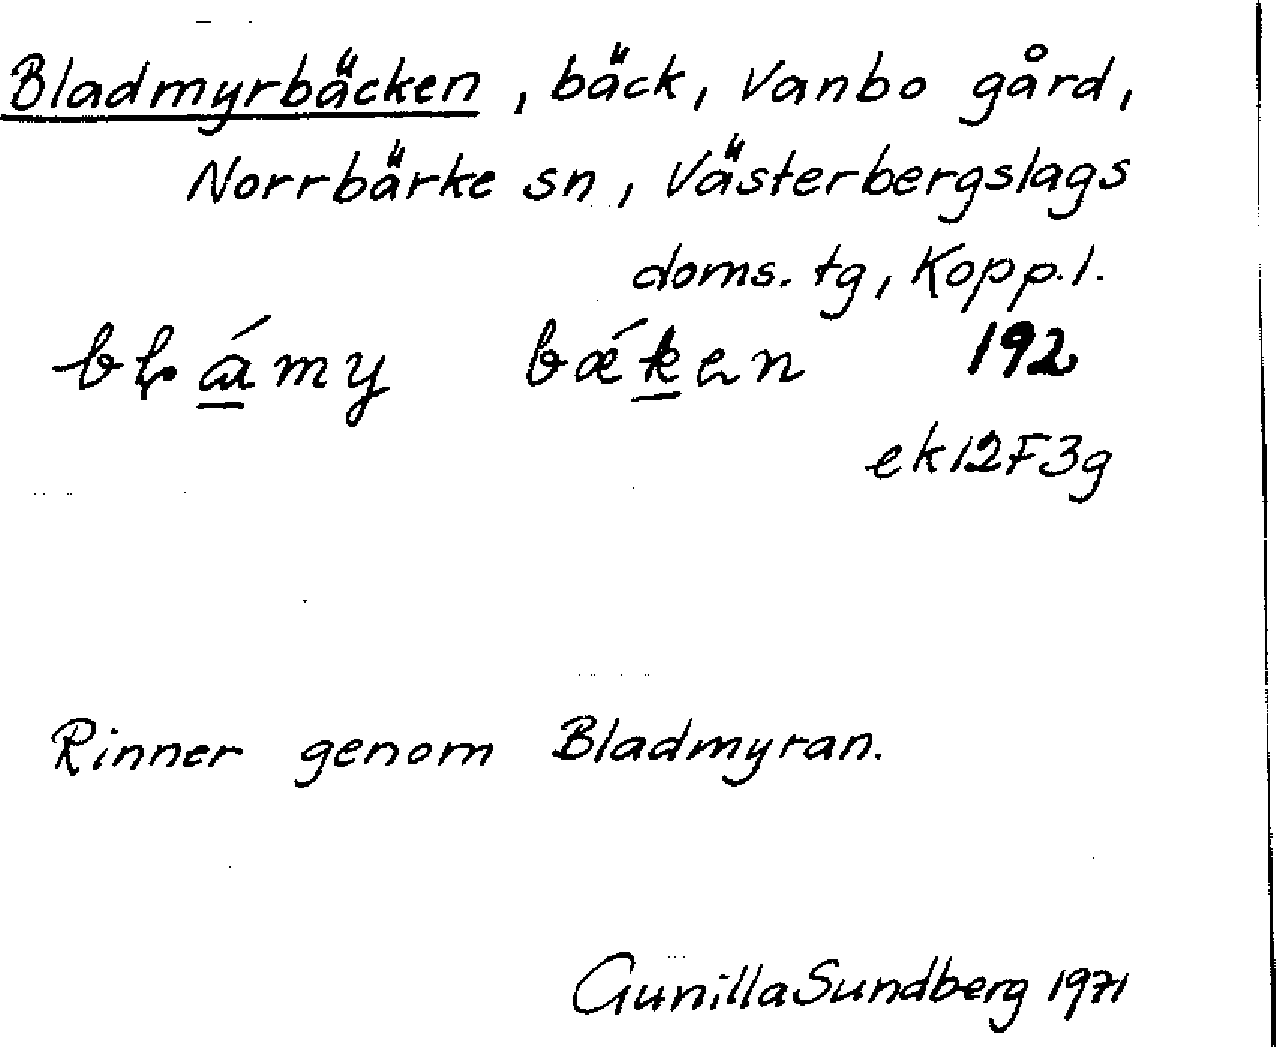 Bladmyrbäcken, bäck, Vanbo gård,
Norrbärke sn, Västerbergslags
doms. tg, Kopp. l.
192
ek12F3g
Rinner genom Bladmyran.
Gunilla Sundberg 1971